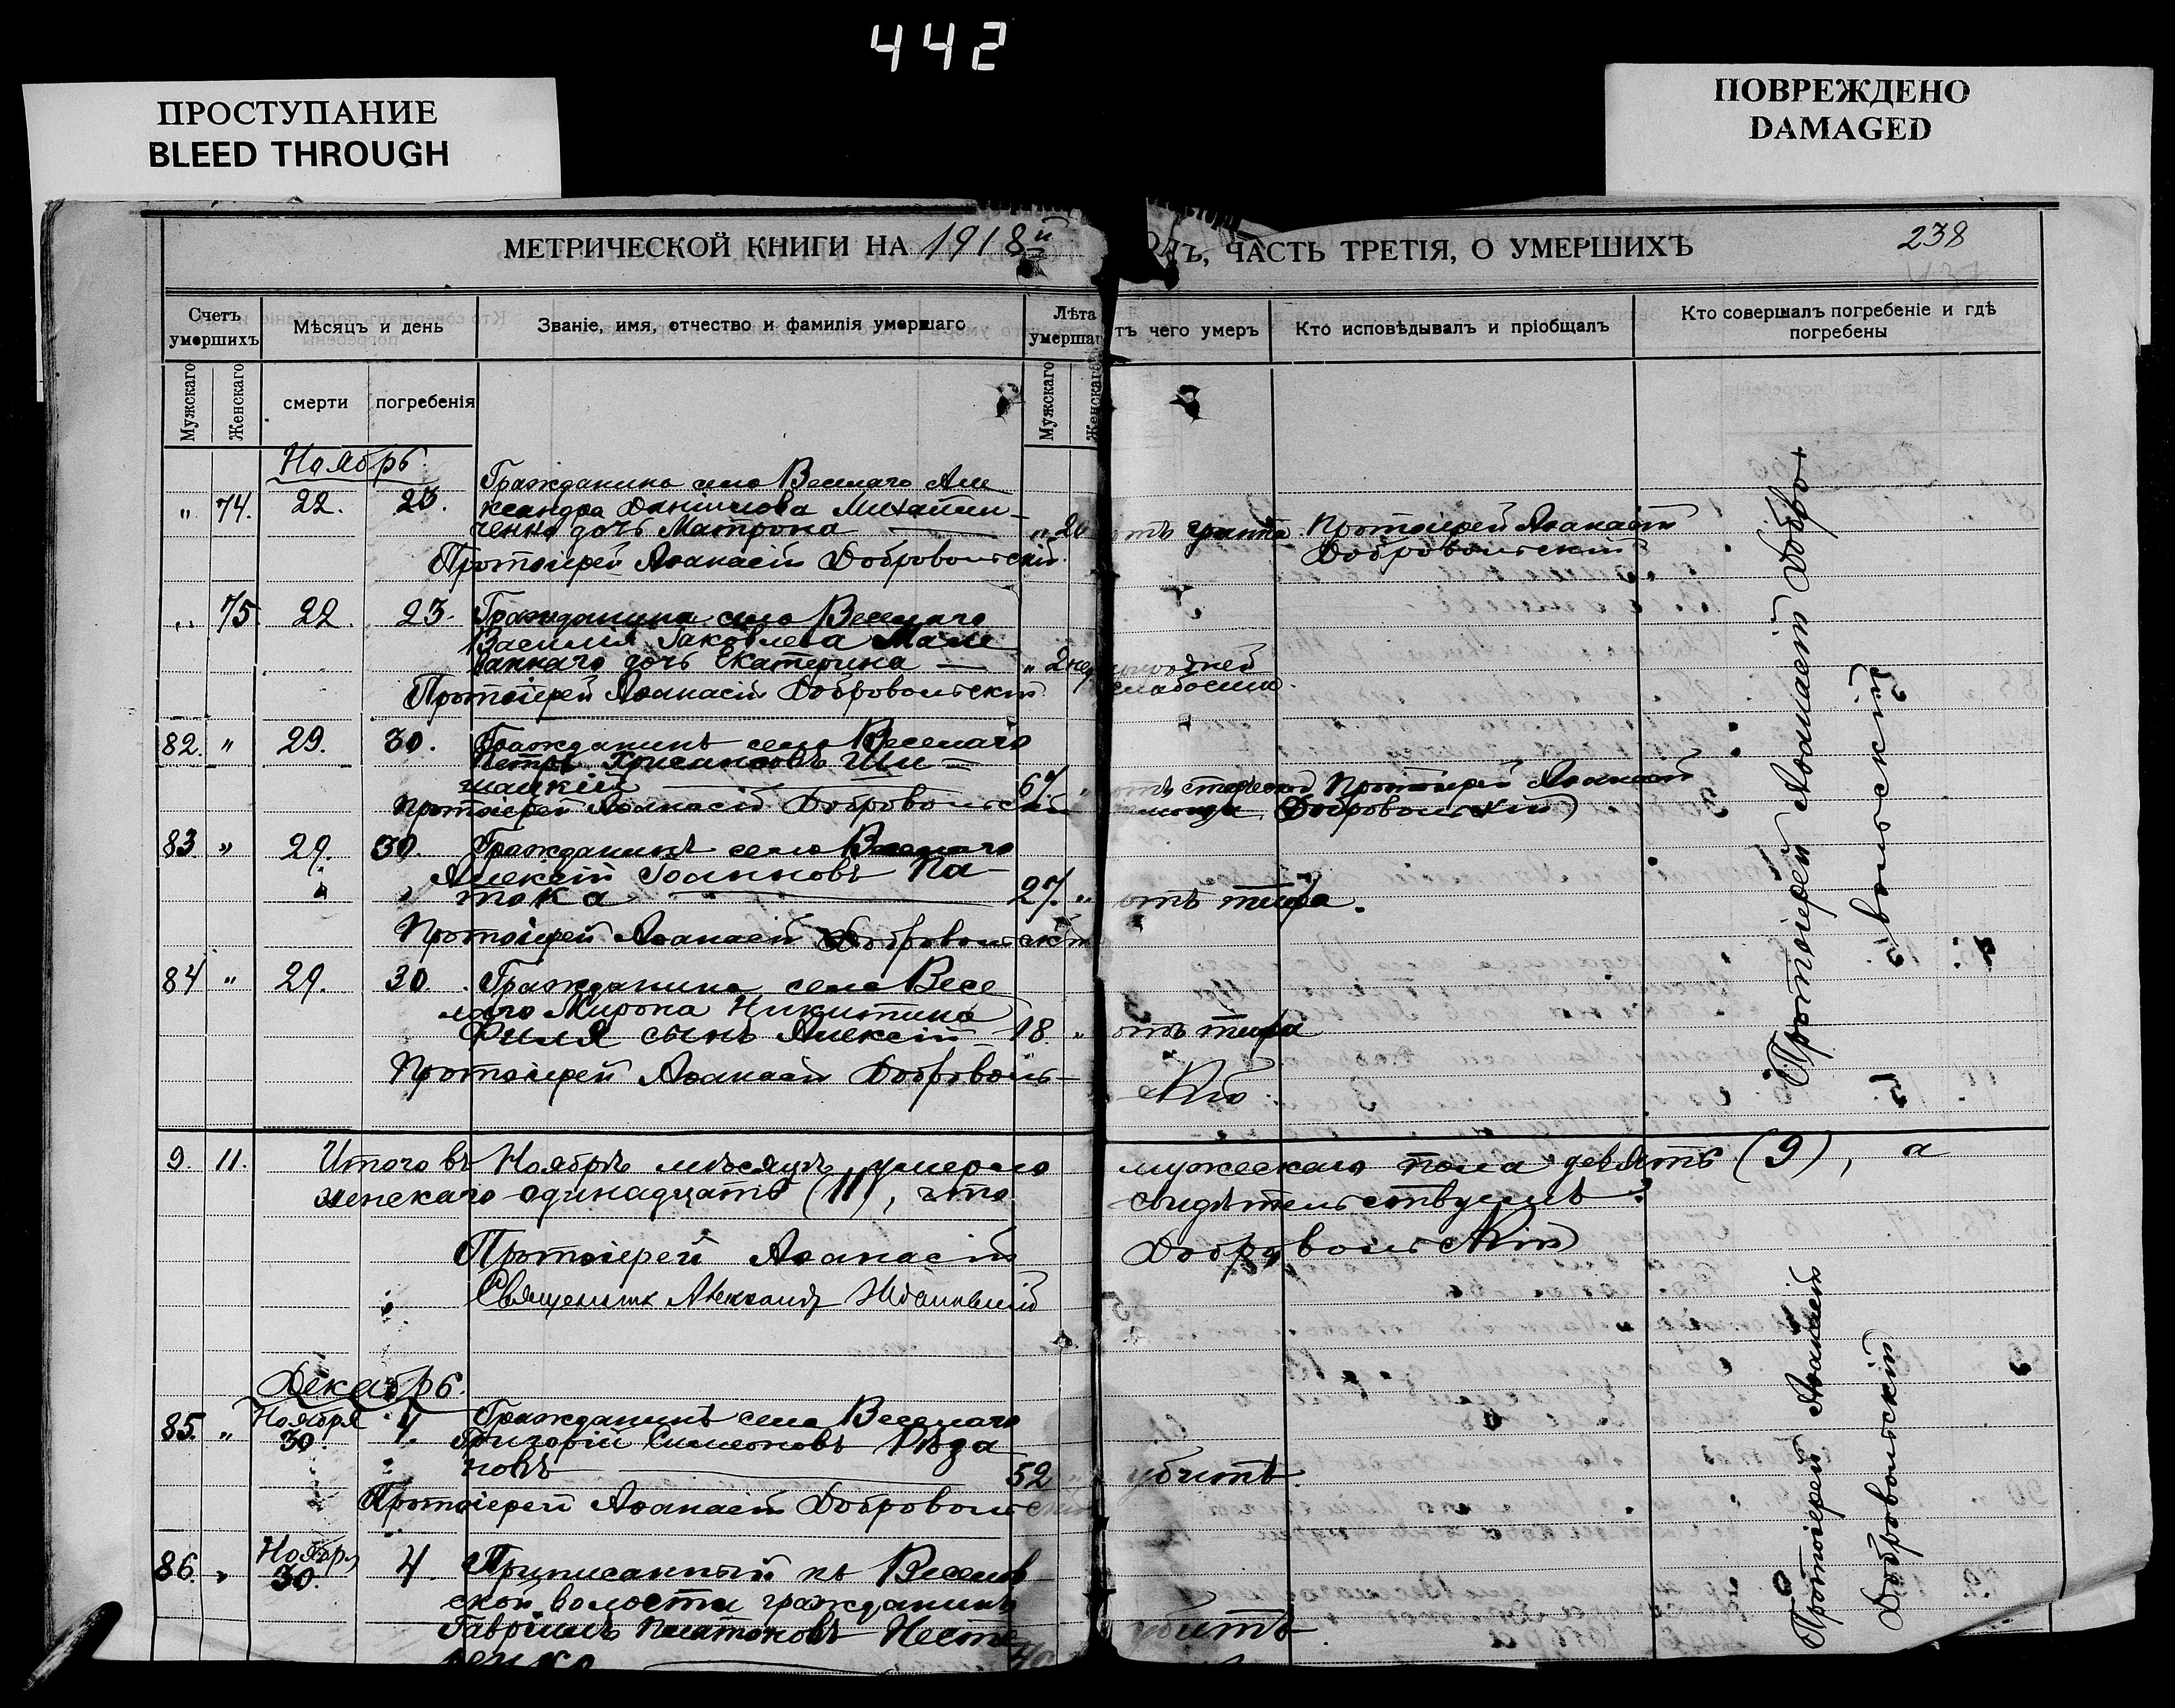 442
ПРОСТУПАНИЕ
BLEED THROUGH
ПОВРЕЖДЕНО
DAMAGED
МЕТРИЧЕСКОЙ КНИГИ НА 1918й
ОДЪ, ЧАСТЬ ТРЕТІЯ, О УМЕРШИХЪ
238
Счетъ умершихъ
Мѣсяцъ и день
Званіе, имя, отчество и фамилія умершаго
Лѣта
умерша
тъ чего умеръ
Кто исповѣдывалъ и пріобщалъ
Кто совершалъ погребеніе и гдѣ погребены
Мужскаго
Женскаго
смерти
погребенія
Мужскаго
Женскаго
Ноябрь.
„ 74. 22. 23. Гражданина села Веселаго Але
ксандра Даніилова Михайли-
ченко дочь Матрона — „ 20 отъ гриппа Протоіерей Аѳанасій
Протоіерей Аѳанасій Добровольскій. Добровольскій
„ 75. 22. 23. Гражданина села Веселаго
Василія Іаковлева Мале
ваннаго дочь Екатерина — „ 2 нед
Протоіерей Аѳанасій Добровольскій слабости.
82. „ 29. 30. Гражданинъ села Веселаго
Петръ Хрисанѳовъ Ши-
шацкій — 67. „ отъ Протоіерей Аѳанасій
Протоіерей Аѳанасій Добровольскій Добровольскій
83. „ 29. 30. Гражданинъ села Веселаго
Алексій Іоанновъ Па-
тока — 27. „ отъ тифа.
Протоіерей Аѳанасій Добровольскій
84 „ 29. 30. Гражданина села Весе
лаго Мирона Никитина
Филя сынъ Алексій — 18. „ отъ тифа
Протоіерей Аѳанасій Доброволь-
скій.
Протоіерей Аѳанасій Добро-
вольскій
9. 11. Итого въ Ноябрѣ мѣсяцѣ умерло мужескаго пола девять (9), а
женскаго одинадцать (11), что свидѣтельствуемъ:
Протоіерей Аѳанасій Добровольскій
Священникъ Александръ
Декабрь.
85. „ Ноября 30. 1. Гражданинъ села Веселаго
Григорій Симеоновъ Рѣза
новъ — 52 „ убитъ.
Протоіерей Аѳанасій Добровольскій
86. „ Ноября 30. 4. Приписанный къ Веселов
ской волости гражданинъ
Гавріилъ Платоновъ Несте убитъ.
ренко
Протоіерей Аѳанасій
Добровольскій